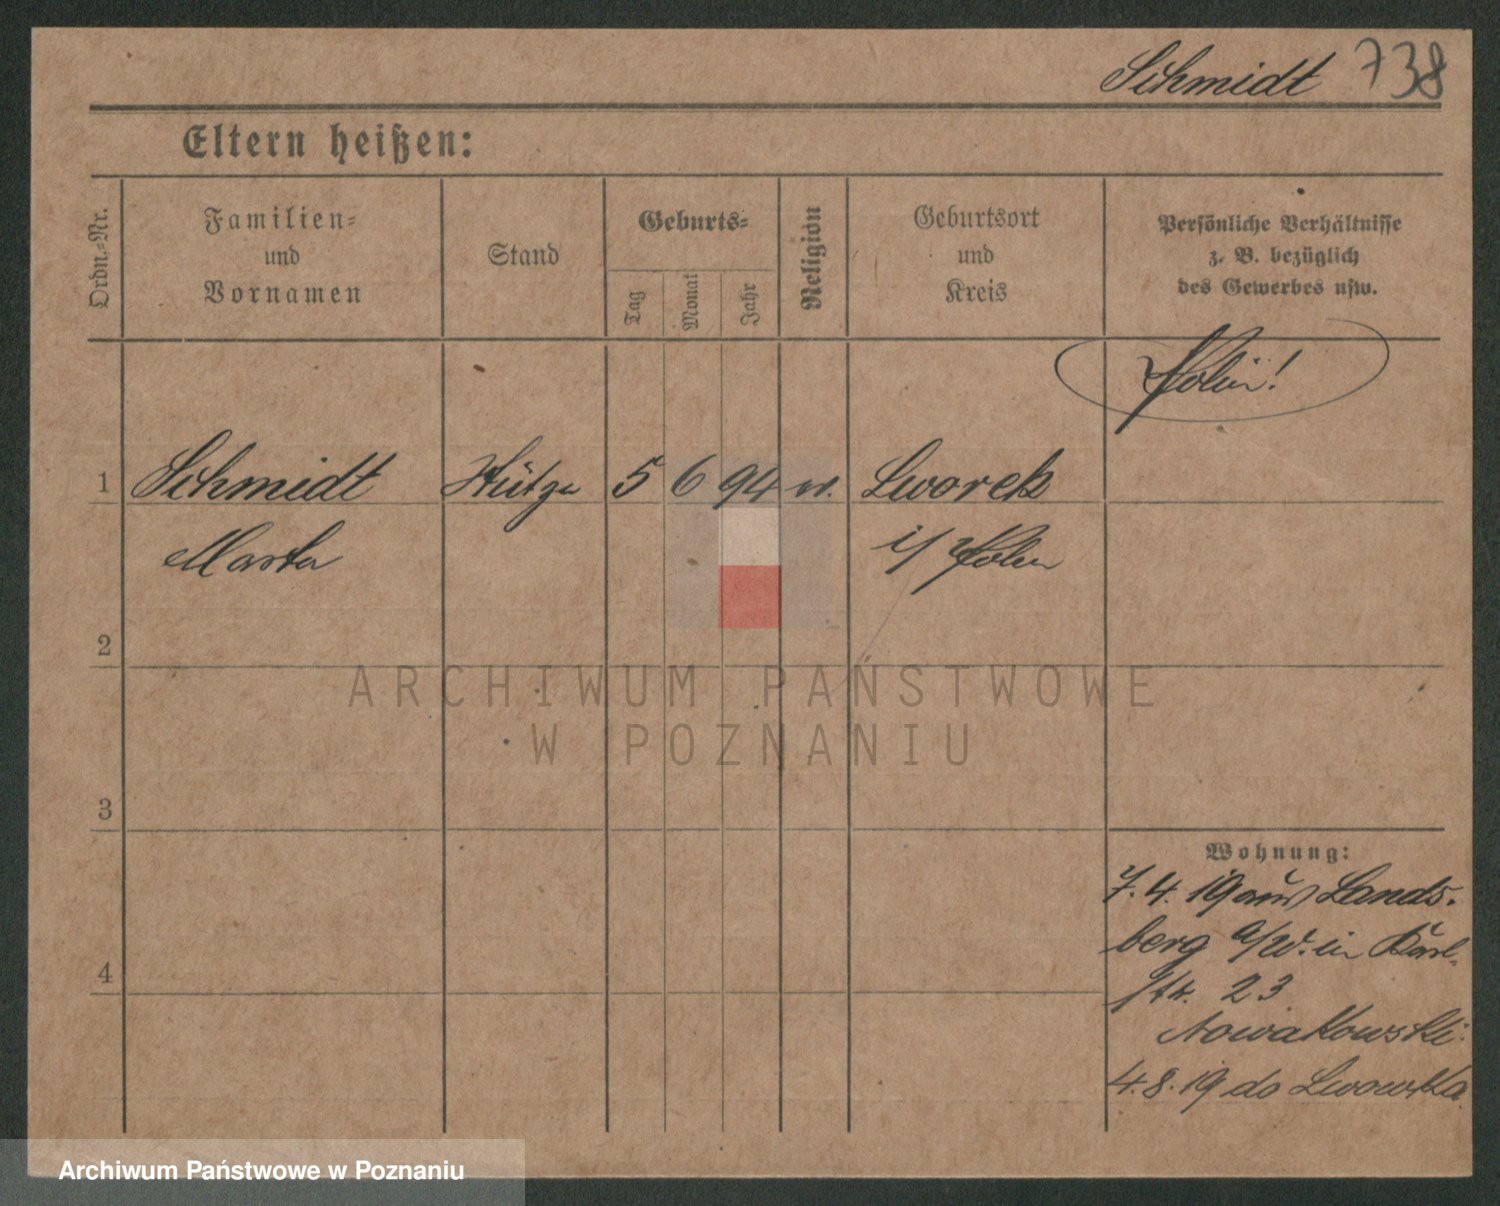 Schmidt 738
Eltern heißen:
Ordn.-Nr.
Familien-
und
Vornamen
Stand
Geburts-
Tag
Monat
Jahr
Religion
Geburtsort
und
Kreis
Persönliche Verhältnisse
z. B. bezüglich
des Gewerbes usw.
Polin!
1 Schmidt Stütze 5 6 94 Lworek
Marta i/ Polen
2
3
4
Wohnung:
7. 4. 19 aus Lands-
berg a/W. in Karl-
str. 23
Nowakowski.
4. 8. 19 do Lwowka
ARCHIWUM PAŃSTWOWE
W POZNANIU
Archiwum Państwowe w Poznaniu